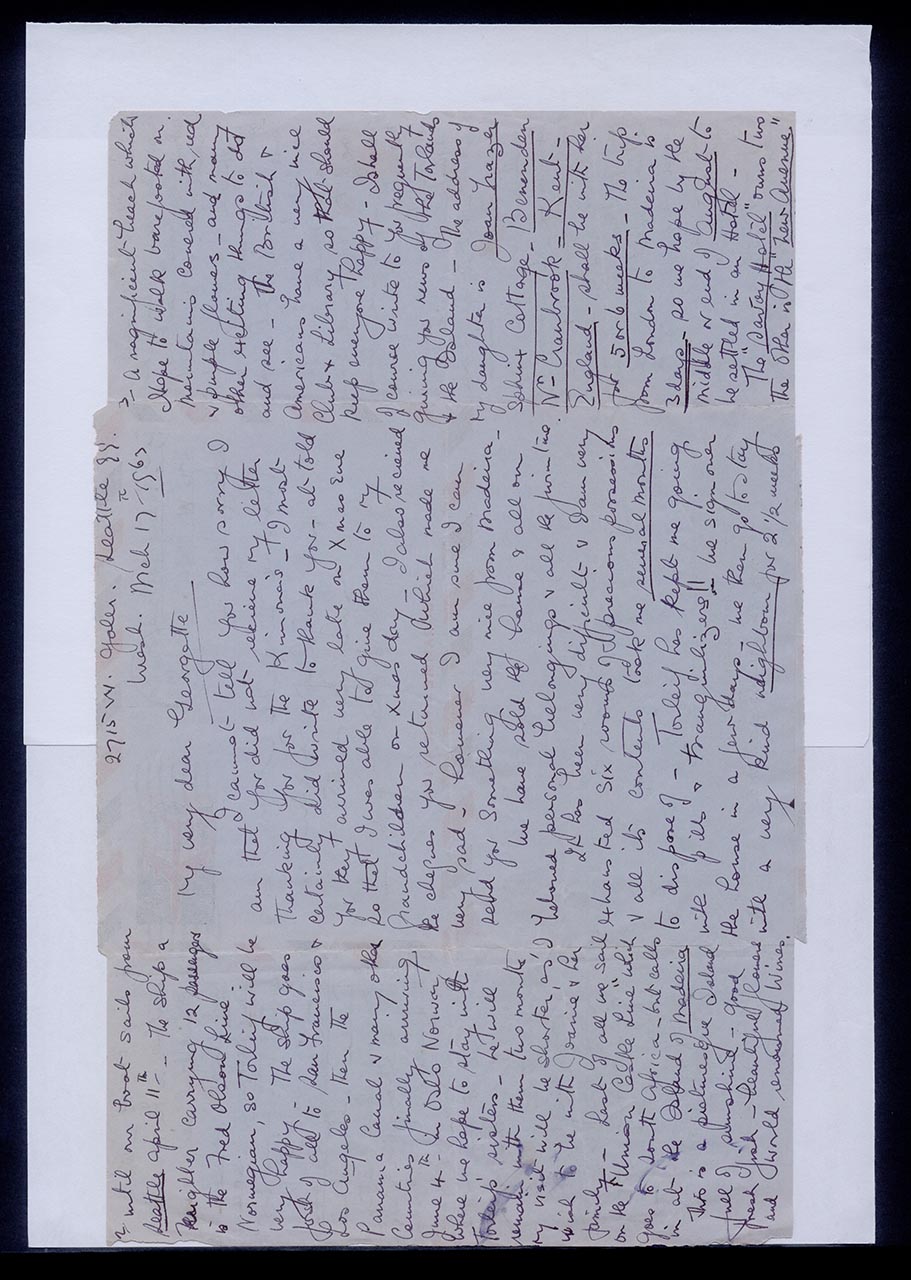 2715 W. Galer. Seattle 99.
Wash. Mch 17th 1963
My very dear Georgette
I cannot tell you how sorry I
am that you did not receive my letter
thanking you for the Kimonas - I most
certainly did write to thank you - & told
you they arrived very late on Xmas Eve
so that I was able to give them to my
Grandchildren on Xmas day - I also recieved
the cheques you returned which made me
very sad - however I am sure I can
send you something very nice from Madeira -
We have sold the home & all our
beloved personal belongings & all the furniture
It has been very difficult & I am very
exhausted. Six rooms of precious possessions
& all its contents took me several months
to dispose of - Torleif has kept me going
with pills & tranquilizers!! We sign over
the house in a few days - we then go to stay
with a very kind neighbour for 2 1/2 weeks
2 until our boat sails from
Seattle April 11th - The ship a
freighter carrying 12 passengers
is the Fred Olsson Line
Norwegian, so Torleif will be
very happy. The ship goes
first of all to San Francisco &
Los Angeles - then the
Panama Canal & many other
Countries finally arriving
June 4th in Oslo Norway
where we hope to stay with
Torleif's sisters - he will
remain with them two months
my visit will be shorter, as I
wish to be with Joanie & her
family - Last of all we sail
on the "Union Castle Line" which
goes to South Africa - but calls
in at the Island of Madeira
This is a picturesque Island
full of sunshine - good
fresh fish - beautiful flowers
and world renowned Wines.
3 - A magnificent beach which
I hope to walk barefooted on.
Mountains covered with red
& purple flowers - and many
other exciting things to do
and see - the British &
Americans have a very nice
Club & Library so that should
keep everyone happy - I shall
of course write to you frequently
giving you news of the Torleifs
& the Island - The address of
my daughter is Joan Frazer
Cottage - Benenden
Nr Cranbrook - Kent -
England - shall be with her
for 5 or 6 weeks - The trip
from London to Madeira is
3 days - so we hope by the
middle or end of August to
be settled in an Hotel -
The "Savoy Hotel" owns two
the other is the "New Avenue"